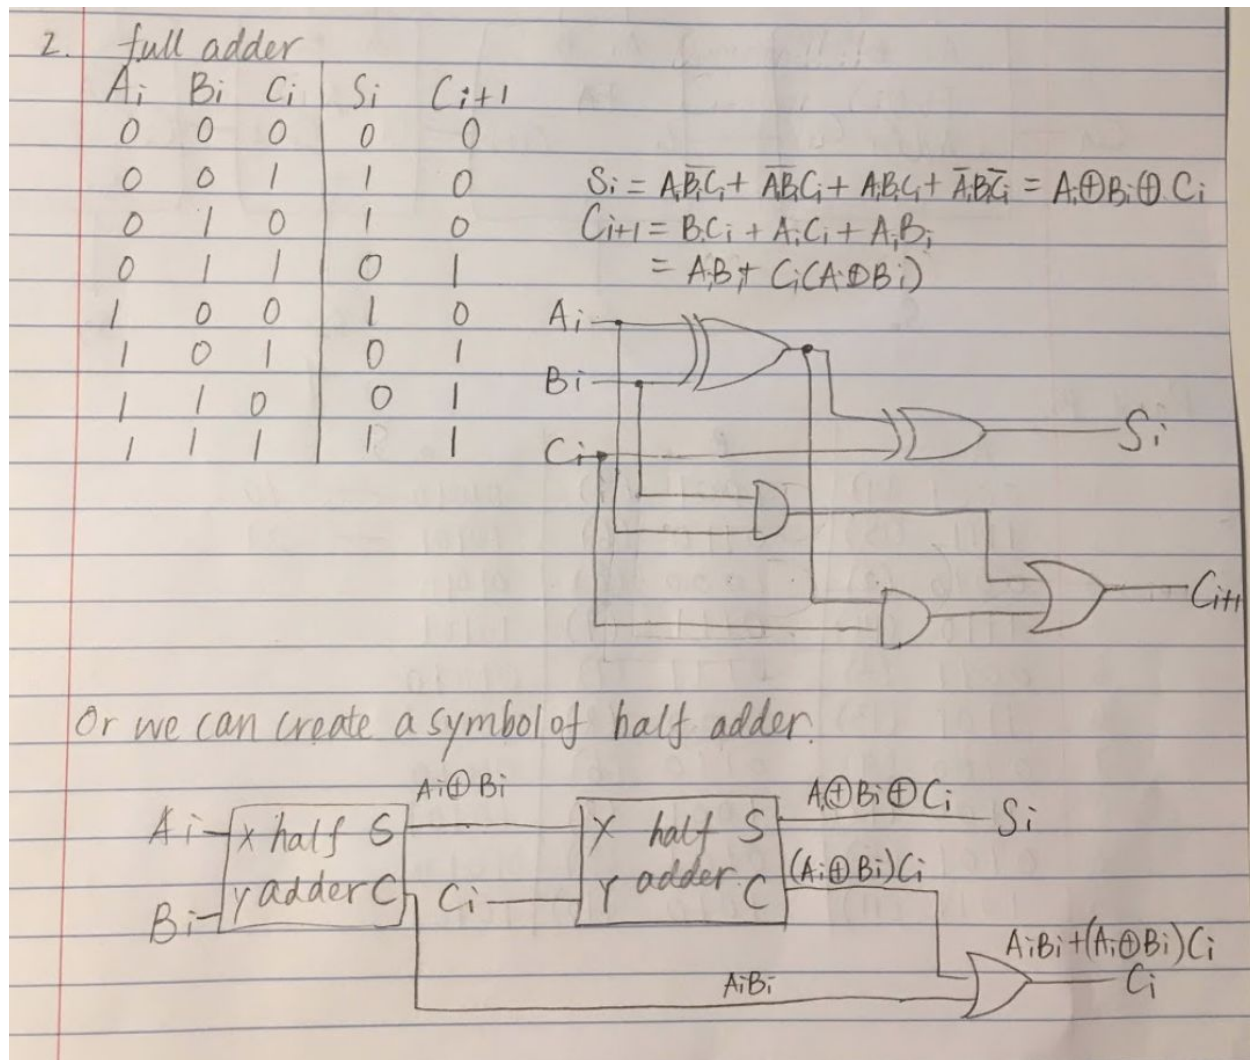 2. full adder
Ai Bi Ci Si Ci+1
0 0 0 0 0
0 0 1 1 0
0 1 0 1 0
0 1 1 0 1
1 0 0 1 0
1 0 1 0 1
1 1 0 0 1
1 1 1 1 1
Si = AiB̅iC̅i + A̅iB̅iCi + AiBiCi + A̅iBiC̅i = Ai⊕Bi⊕Ci
Ci+1 = BiCi + AiCi + AiBi
= AiBi + Ci(Ai⊕Bi)
Ai
Bi
Ci
Si
Ci+1
Or we can create a symbol of half adder.
Ai⊕Bi Ai⊕Bi⊕Ci
Ai X half S X half S Si
Bi Y adder C Ci Y adder C (Ai⊕Bi)Ci
AiBi+(Ai⊕Bi)Ci
AiBi Ci